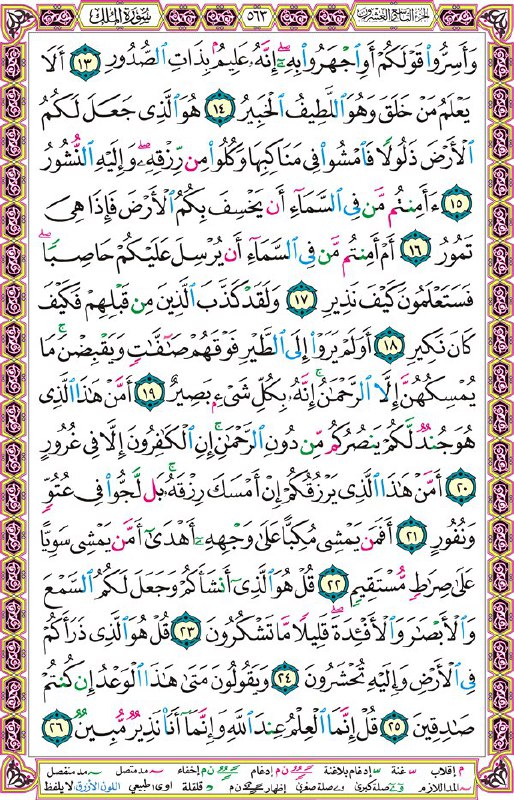 سُورَةُ المُلْك ٥٦٣ الجزء التاسع والعشرون
وَأَسِرُّوا۟ قَوْلَكُمْ أَوِ ٱجْهَرُوا۟ بِهِۦٓ ۖ إِنَّهُۥ عَلِيمٌۢ بِذَاتِ ٱلصُّدُورِ ١٣ أَلَا
يَعْلَمُ مَنْ خَلَقَ وَهُوَ ٱللَّطِيفُ ٱلْخَبِيرُ ١٤ هُوَ ٱلَّذِى جَعَلَ لَكُمُ
ٱلْأَرْضَ ذَلُولًا فَٱمْشُوا۟ فِى مَنَاكِبِهَا وَكُلُوا۟ مِن رِّزْقِهِۦ ۖ وَإِلَيْهِ ٱلنُّشُورُ
١٥ ءَأَمِنتُم مَّن فِى ٱلسَّمَآءِ أَن يَخْسِفَ بِكُمُ ٱلْأَرْضَ فَإِذَا هِىَ
تَمُورُ ١٦ أَمْ أَمِنتُم مَّن فِى ٱلسَّمَآءِ أَن يُرْسِلَ عَلَيْكُمْ حَاصِبًا ۖ
فَسَتَعْلَمُونَ كَيْفَ نَذِيرِ ١٧ وَلَقَدْ كَذَّبَ ٱلَّذِينَ مِن قَبْلِهِمْ فَكَيْفَ
كَانَ نَكِيرِ ١٨ أَوَلَمْ يَرَوْا۟ إِلَى ٱلطَّيْرِ فَوْقَهُمْ صَـٰٓفَّـٰتٍ وَيَقْبِضْنَ ۚ مَا
يُمْسِكُهُنَّ إِلَّا ٱلرَّحْمَـٰنُ ۚ إِنَّهُۥ بِكُلِّ شَىْءٍۭ بَصِيرٌ ١٩ أَمَّنْ هَـٰذَا ٱلَّذِى
هُوَ جُندٌ لَّكُمْ يَنصُرُكُم مِّن دُونِ ٱلرَّحْمَـٰنِ ۚ إِنِ ٱلْكَـٰفِرُونَ إِلَّا فِى غُرُورٍ
٢٠ أَمَّنْ هَـٰذَا ٱلَّذِى يَرْزُقُكُمْ إِنْ أَمْسَكَ رِزْقَهُۥ ۚ بَل لَّجُّوا۟ فِى عُتُوٍّ
وَنُفُورٍ ٢١ أَفَمَن يَمْشِى مُكِبًّا عَلَىٰ وَجْهِهِۦٓ أَهْدَىٰٓ أَمَّن يَمْشِى سَوِيًّا
عَلَىٰ صِرَٰطٍ مُّسْتَقِيمٍ ٢٢ قُلْ هُوَ ٱلَّذِىٓ أَنشَأَكُمْ وَجَعَلَ لَكُمُ ٱلسَّمْعَ
وَٱلْأَبْصَـٰرَ وَٱلْأَفْـِٔدَةَ ۖ قَلِيلًا مَّا تَشْكُرُونَ ٢٣ قُلْ هُوَ ٱلَّذِى ذَرَأَكُمْ
فِى ٱلْأَرْضِ وَإِلَيْهِ تُحْشَرُونَ ٢٤ وَيَقُولُونَ مَتَىٰ هَـٰذَا ٱلْوَعْدُ إِن كُنتُمْ
صَـٰدِقِينَ ٢٥ قُلْ إِنَّمَا ٱلْعِلْمُ عِندَ ٱللَّهِ وَإِنَّمَآ أَنَا۠ نَذِيرٌ مُّبِينٌ ٢٦
م إقلاب غنة إدغام بلاغنة ن م إدغام ن م إخفاء مد متصل مد منفصل
المد اللازم صلة كبرى وصلة صغرى إظهار ن م قلقلة اوى طبيعي اللون الأزرق لا يلفظ